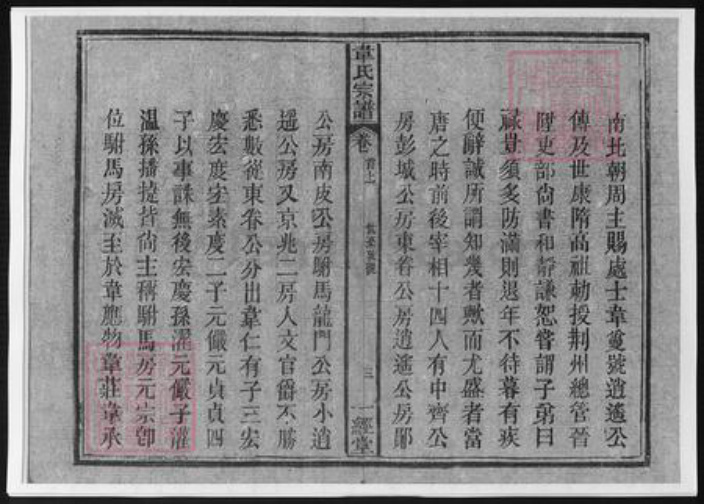 南北朝周主賜處士韋敻號逍遙公
傳及世康隋高祖勅授荆州總管晉
陞吏部尚書和靜謙恕嘗謂子弟曰
祿豈須多防滿則退年不待暮有疾
便辭誠所謂知幾者歟而尤盛者當
唐之時前後宰相十四人有中齊公
房彭城公房東眷公房逍遙公房鄖
韋氏宗譜
卷首上
三
一經堂
公房南皮公房駙馬龍門公房小逍
遙公房又京兆二房人文官爵不勝
悉數從東眷公分出韋仁有子三宏
慶宏度宏素慶二子元儼元貞貞四
子以事誅無後宏慶孫濯元儼子灌
温孫播捷皆尚主稱駙馬房元宗卽
位駙馬房滅至於韋應物韋莊韋承